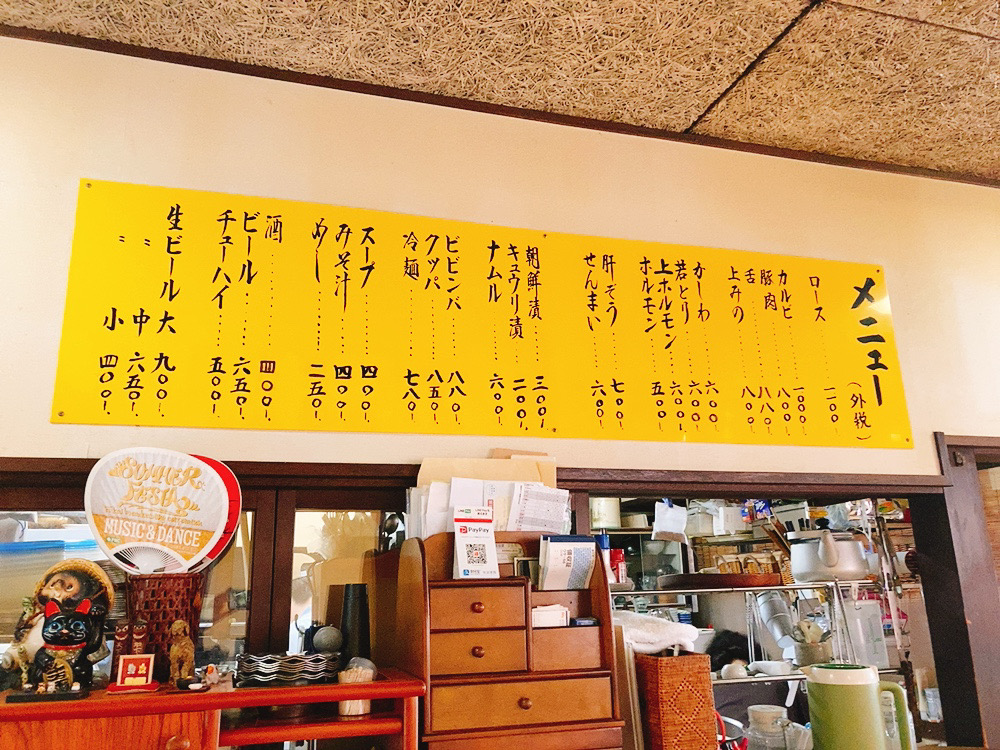 メニュー（外税）
ロース……一一〇〇
カルビ……一〇〇〇
豚肉……八〇〇
舌……八八〇
上みの……八〇〇
かしわ……六〇〇
若とり……六〇〇
上ホルモン……六〇〇
ホルモン……五〇〇
肝ぞう……七〇〇
せんまい……六〇〇
朝鮮漬……三〇〇
キュウリ漬……二〇〇
ナムル……六〇〇
ビビンバ……八八〇
クッパ……八五〇
冷麺……七八〇
スープ……四〇〇
みそ汁……四〇〇
めし……二五〇
酒……四〇〇
ビール……六五〇
チューハイ……五〇〇
生ビール大 九〇〇
〃 中 六五〇
〃 小 四〇〇
SUMMER
FESTA
MUSIC & DANCE
PayPay